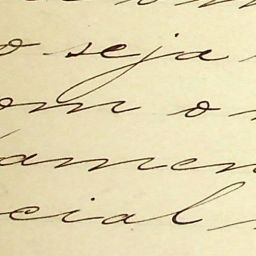 o seja
om o
amen
cial